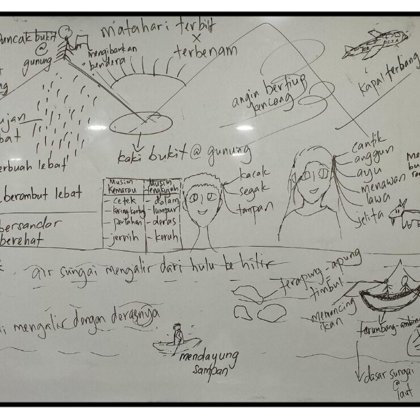 puncak bukit
@
gunung
mengibarkan
bendera
matahari terbit
x
terbenam
kapal terbang
angin bertiup
kencang
hujan
lebat
berbuah lebat
berambut lebat
bersandar
berehat
kaki bukit @ gunung
musim kemarau
musim tengkujuh
- cetek
- dalam
- kering kontang
- lumpur
- perlahan
- deras
- jernih
- keruh
kacak
segak
tampan
cantik
anggun
ayu
menawan
lawa
jelita
air sungai mengalir dari hulu ke hilir
terapung-apung
=
timbul
memancing
ikan
mengalir dengan derasnya
mendayung
sampan
terumbang-ambing
dasar sungai
@
laut